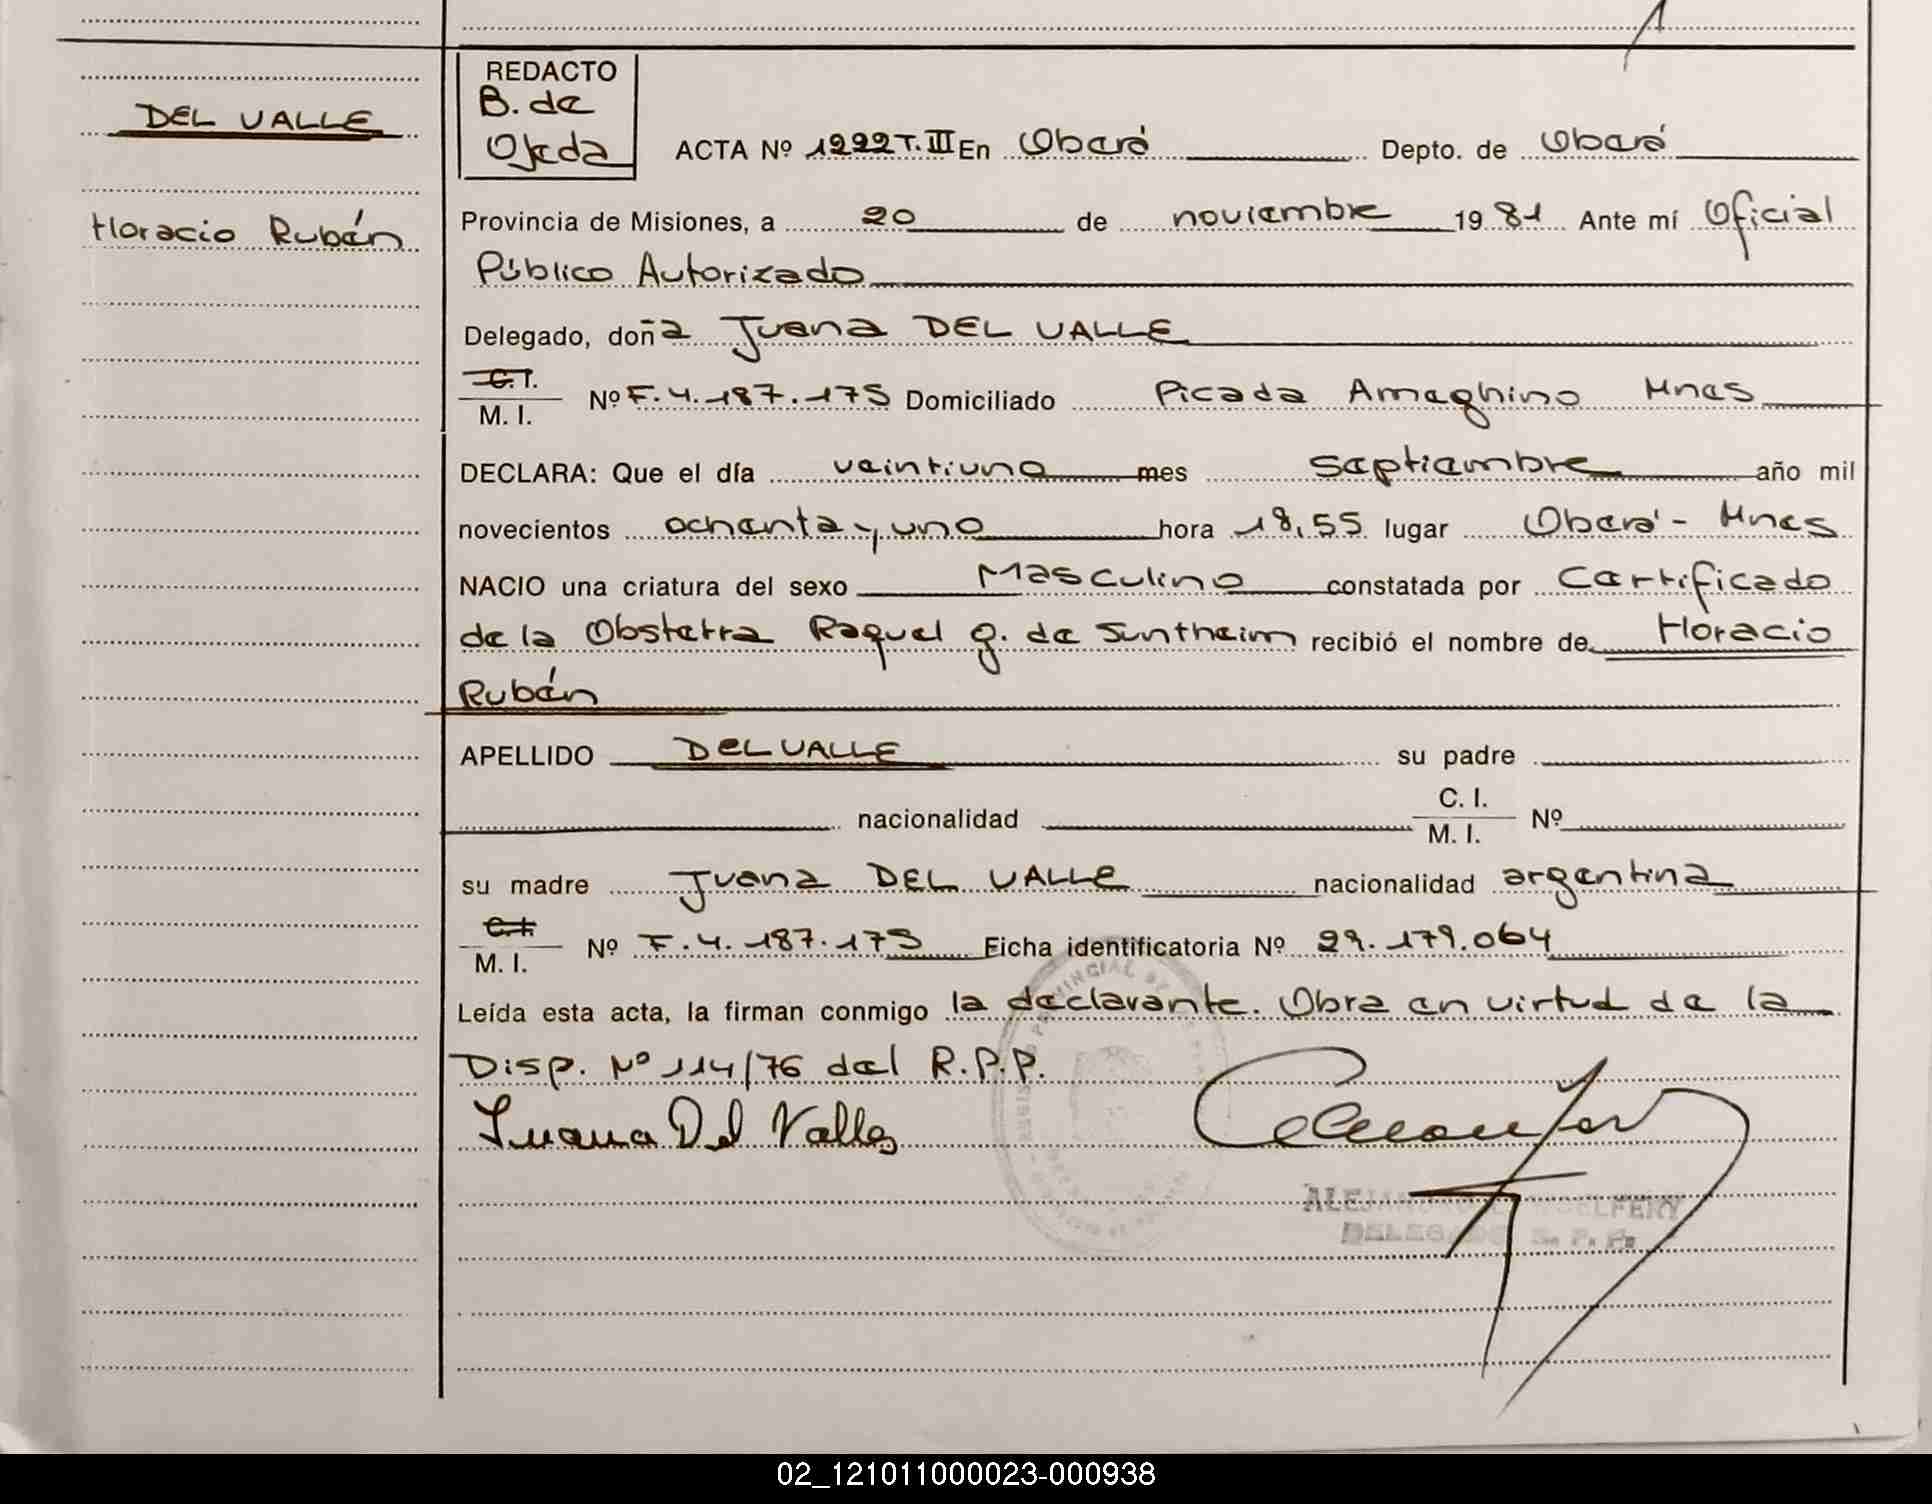 REDACTO
B. de
Ojeda
DEL VALLE
ACTA Nº 1222 T. III En Oberá Depto. de Oberá
Horacio Rubén
Provincia de Misiones, a 20 de noviembre 1981 Ante mí Oficial
Público Autorizado
Delegado, doña Juana DEL VALLE
C.I.
M. I. Nº F. 4.187.175 Domiciliado Picada Ameghino Mnes
DECLARA: Que el día veintiuno mes septiembre año mil
novecientos ochenta y uno hora 18,55 lugar Oberá - Mnes
NACIO una criatura del sexo Masculino constatada por Certificado
de la Obstetra Raquel g. de Suntheim recibió el nombre de Horacio
Rubén
APELLIDO DEL VALLE su padre
nacionalidad C. I.
M. I. Nº
su madre Juana DEL VALLE nacionalidad argentina
C.I.
M. I. Nº F. 4.187.175 Ficha identificatoria Nº 29.179.064
Leída esta acta, la firman conmigo la declarante. Obra en virtud de la
Disp. Nº 114/76 del R.P.P.
Juana Del Valle
DELEGADO
02_121011000023-000938